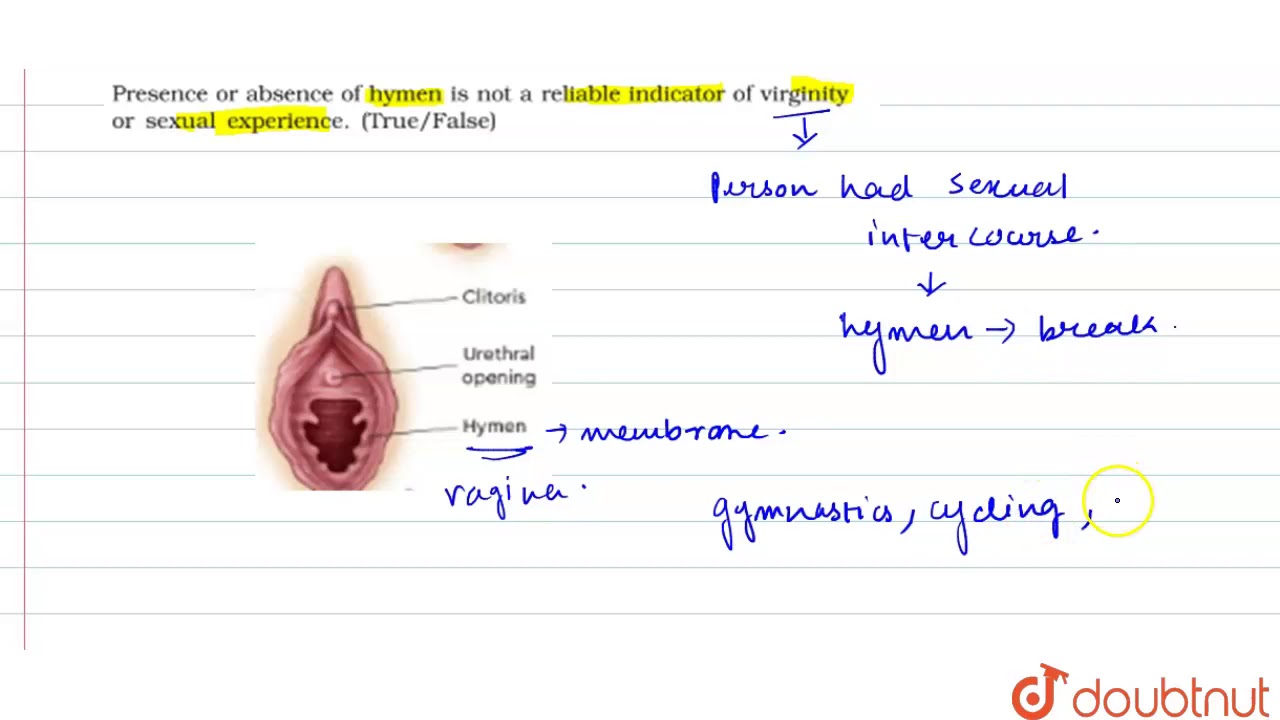 Presence or absence of hymen is not a reliable indicator of virginity
or sexual experience. (True/False)
↓
Person had sexual
intercourse.
↓
hymen → break.
Clitoris
Urethral
opening
Hymen → membrane.
vagina.
gymnastics, cycling,
doubtnut